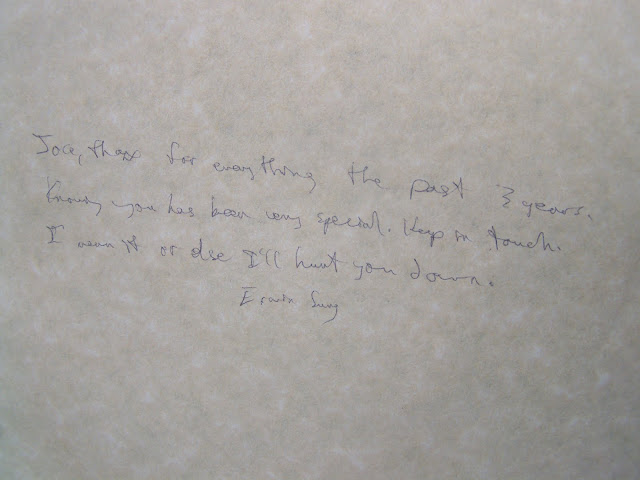 Joce, thanx for everything the past 3 years.
Knowing you has been very special. Keep in touch.
I mean it or else I'll hunt you down.
Erwin Sung